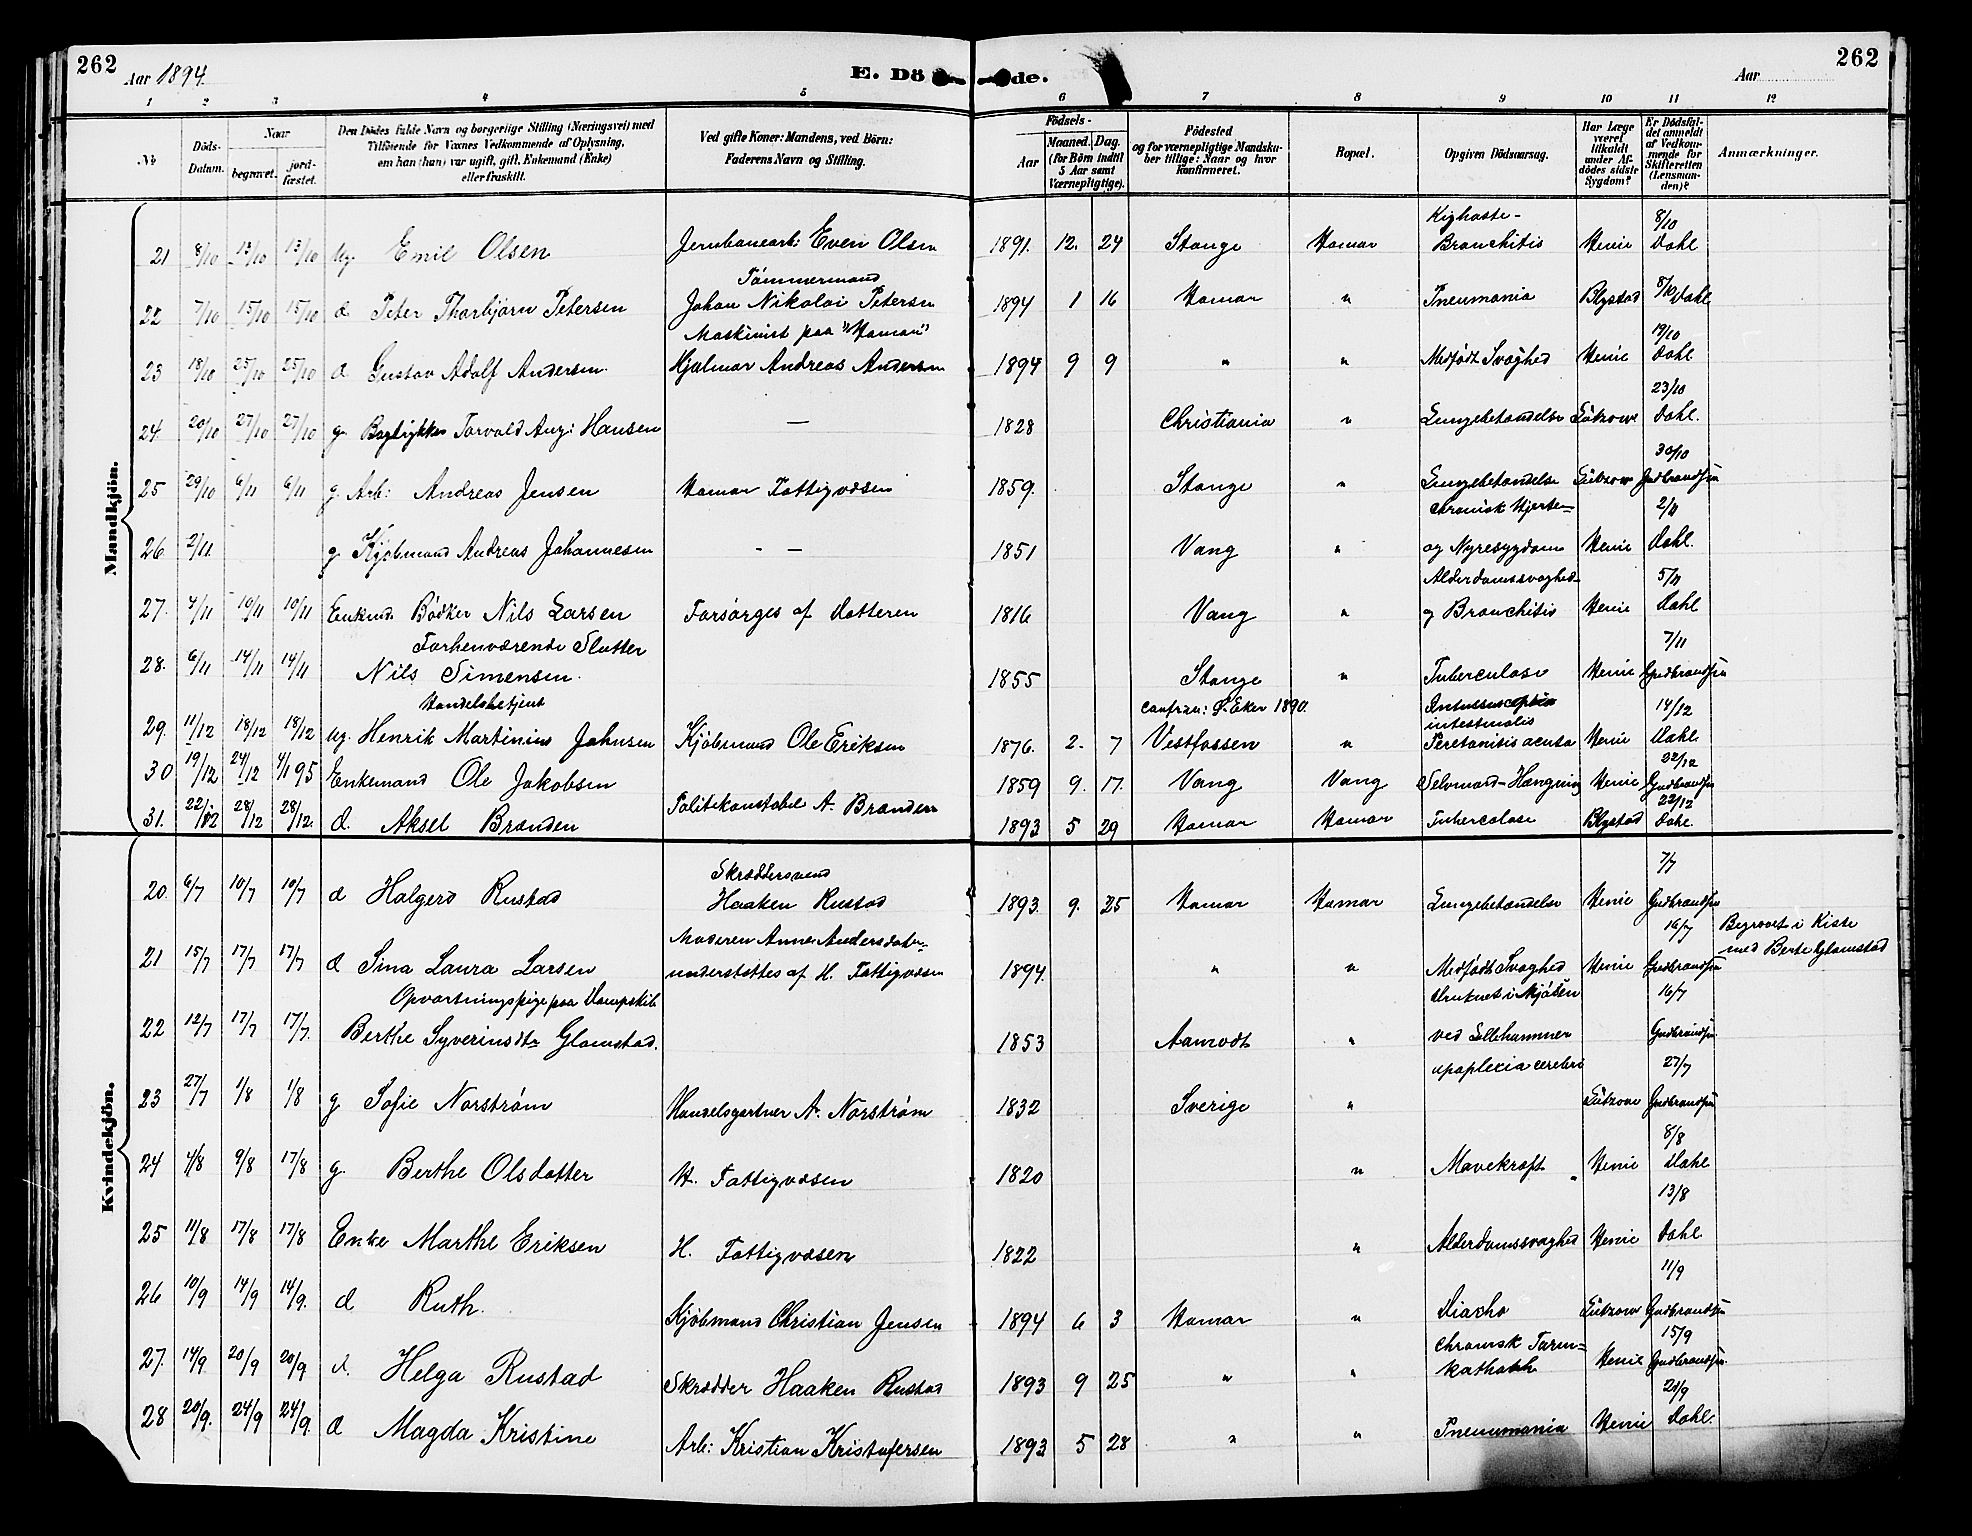 262
Aar 1894.
E. Dö de.
Aar
262
1 2 3 4 5 6 7 8 9 10 11 12
No
Döds-Datum.
Naar
begravet.
jord-fæstet.
Den Dödes fulde Navn og borgerlige Stilling (Næringsvei) med
Tilföiende for Voxnes Vedkommende af Oplysning,
om han (hun) var ugift, gift, Enkemand (Enke)
eller fraskilt.
Ved gifte Koner: Mandens, ved Börn:
Faderens Navn og Stilling.
Födsels-
Aar
Maaned. Dag.
(for Börn indtil
5 Aar samt
Værnepligtige).
Födested
og for værnepligtige Mandsku-
ber tillige: Naar og hvor
konfirmeret.
Bopæl.
Opgiven Dödsaarsag.
Har Læge
været
tilkaldt
under Af-
dödes sidste
Sygdom?
Er Dödsfal-
det anmeldt
af Vedkom-
mende for
Skifteretten
(Lensman-
den)?
Anmærkninger.
Mandkjön.
21 8/10 13/10 13/10 Ug. Emil Olsen Jernbanearb: Even Olsen 1891. 12. 24 Stange Hamar Kighoste-Bronchitis Henie 8/10 Dahl
22 7/10 15/10 15/10 d Peter Thorbjørn Petersen Tømmermand Johan Nikolai Petersen 1894 1 16 Hamar " Pneumonia Blystad 8/10 Dahl
23 18/10 25/10 25/10 d. Gustav Adolf Andersen Maskinist paa "Hamar" Hjalmar Andreas Andersen 1894 9 9 " " Medfødt Svaghed Henie 19/10 Dahl
24 20/10 27/10 27/10 g. Bogtrykker Torvald Aug: Hansen — 1828 Christiania " Lungebetændelse Lützow 23/10 Dahl.
25 29/10 6/11 6/11 g. Arb: Andreas Jensen Hamar Fattigvæsen 1859. Stange " Lungebetændelse Lützow 30/10 Gudbrandsen
26 2/11. g. Kjøbmand Andreas Johannesen - - 1851 Vang " Chronisk Hjerte- og Nyresygdom Henie 2/11 Dahl.
27. 4/11 10/11 10/11 Enkemd. Bødker Nils Larsen Forsørges af Datteren 1816 Vang " Alderdomssvaghed og Bronchitis Henie 5/11 Dahl
28. 6/11 14/11 14/11 Forhenværende Slutter Nils Simensen. 1855 Stange " Tuberculose Henie 7/11 Gudbrandsen
29. 11/12 18/12 18/12 Ug. Handelsbetjent Henrik Martinius Johnsen Kjøbmand Ole Eriksen 1876. 2. 7 confirm: Ø. Eker 1890. Vestfossen " intestinalis Peretonitis acuta Henie 14/12 Dahl.
30 19/12 24/12 4/1 95 Enkemand Ole Jakobsen 1859 9. 17. Vang Vang Selvmord-Hængning Henie 22/12 Gudbrandsen
31. 22/12 28/12 28/12. d. Aksel Brenden Politikonstabel A. Brenden 1893 5 29 Hamar Hamar Tuberculose Blystad 22/12 Dahl.
Kvindekjön.
20. 6/7 10/7 10/7 d Holgerd Rustad Skræddersvend Haaken Rustad 1893. 9. 25 Hamar Hamar Lungebetændelse Henie 7/7 Gudbrandsen
21 15/7 17/7 17/7 d Sina Laura Larsen Moderen Anne Andersdatter understøttes af H. Fattigvæsen 1894. " " Medfødt Svaghed Henie 16/7 Gudbrandsen Begravet i Kiste med Berte Glomstad
22 12/7 17/7 17/7. Opvartningspige paa Dampskib Berthe Syverinsdtr Glomstad. 1853 Aamodt " Druknet i Mjøsen ved Lillehammer 16/7 Gudbrandsen
23 27/7 1/8 1/8 g Sofie Norstrøm Handelsgartner A. Norstrøm 1832 Sverige " apoplexia cerebri Lützow 27/7 Gudbrandsen
24 4/8 9/8 17/8 g. Berthe Olsdatter H. Fattigvæsen 1820 " Mavekræft Henie 8/8 Dahl
25 11/8 17/8 17/8 Enke Marthe Eriksen H. Fattigvæsen 1822 " Alderdomssvaghed Henie 13/8 Dahl
26 10/9 14/9 14/9. d Ruth. Kjøbmand Christian Jensen 1894 6 3 Hamar " Lützow 11/9 Gudbrandsen
27. 14/9. 20/9 20/9 d. Helga Rustad Skrædder Haaken Rustad 1893 9 25 " " Chronisk Tarm-kathar Henie 15/9 Gudbrandsen
28 20/9. 24/9 24/9. d Magda Kristine Arb: Kristian Kristofersen 1893 5 28 " " Pneumonia Henie 21/9 Dahl.